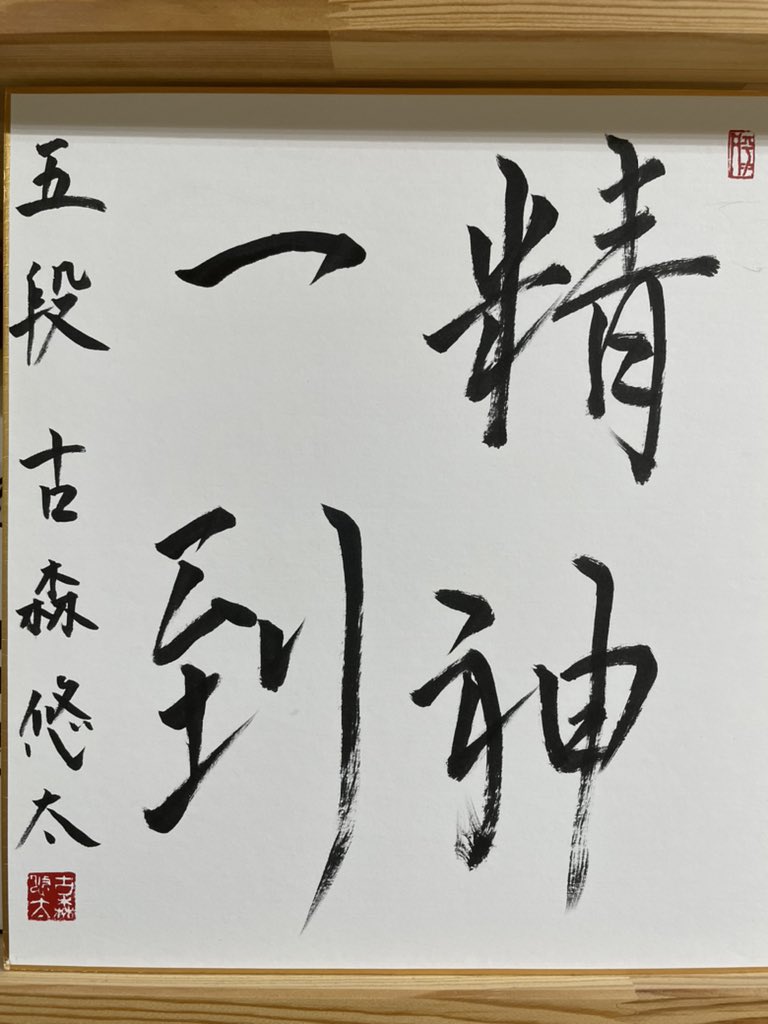 精神
一到
五段 古森悠太
古森
悠太